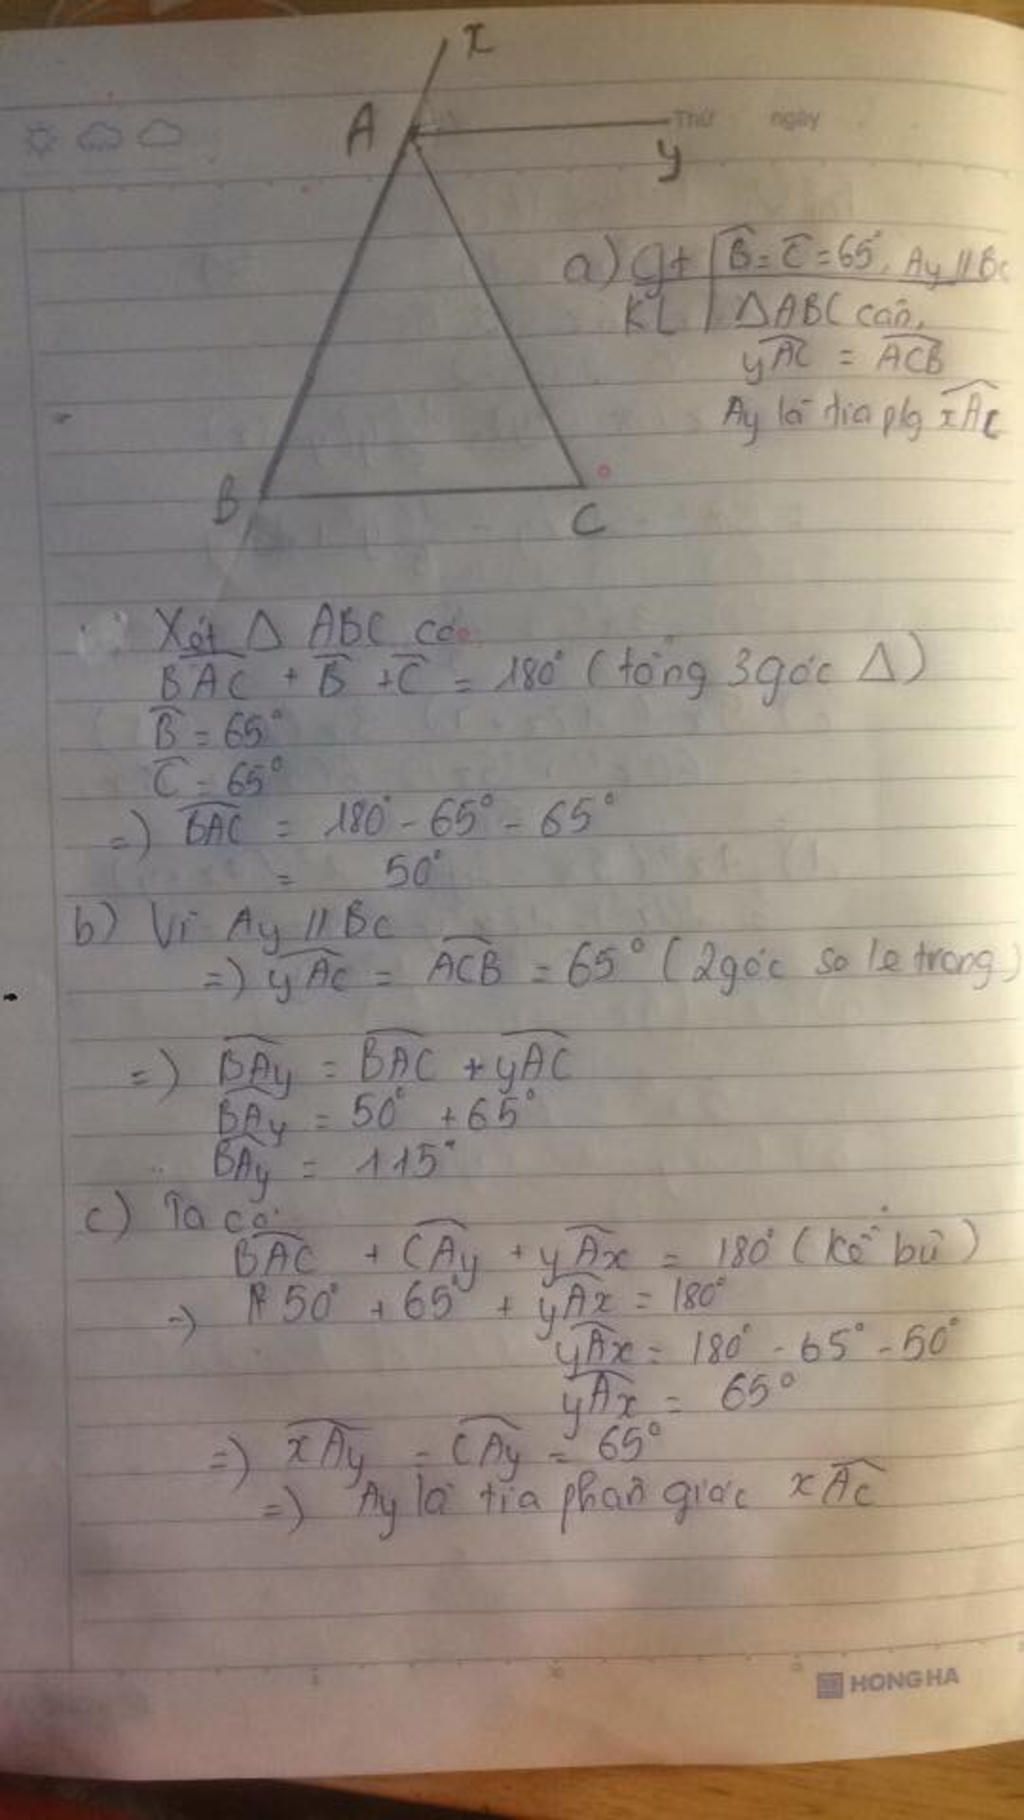 x
A
Thứ ngày
y
a) gt | B̂ = Ĉ = 65°, Ay // Bc
KL | ΔABC cân,
yAC = ACB
Ay là tia plg xAc
B
C
Xét Δ ABC có
BAC + B̂ + Ĉ = 180° (tổng 3 góc Δ)
B̂ = 65°
Ĉ = 65°
=) BAC = 180° - 65° - 65°
= 50°
b) Vì Ay // Bc
=) yAc = ACB = 65° (2 góc so le trong)
=) BAy = BAC + yAC
BAy = 50° + 65°
BAy = 115°
c) Ta có
BAC + CAy + yAx = 180° (kề bù)
=) 50° + 65° + yAx = 180°
yAx = 180° - 65° - 50°
yAx = 65°
=) xAy = CAy = 65°
=) Ay là tia phân giác xAc
HONG HA